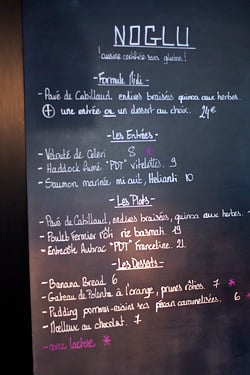 NOGLU
! cuisine certifiée sans gluten !
- Formule Midi -
- Pavé de Cabillaud, endives braisées quinoa aux herbes.
+ une entrée ou un dessert au choix. 24€
- Les Entrées -
- Velouté de Céleri 8 *
- Haddock fumé "PDT" vitelottes. 9
- Saumon mariné mi cuit, Hélianti 10
- Les Plats -
- Pavé de Cabillaud, endives braisées, quinoa aux herbes. -
- Poulet Fermier rôti riz basmati 19
- Entrecôte Aubrac "PDT" Franceline. 21.
- Les Desserts -
- Banana Bread 6
- Gateau de Polenta à l'orange, prunes rôties. 7 *
- Pudding pommes-raisins secs pécan caramélisées. 6 *
- Moelleux au chocolat. 7
- avec lactose *